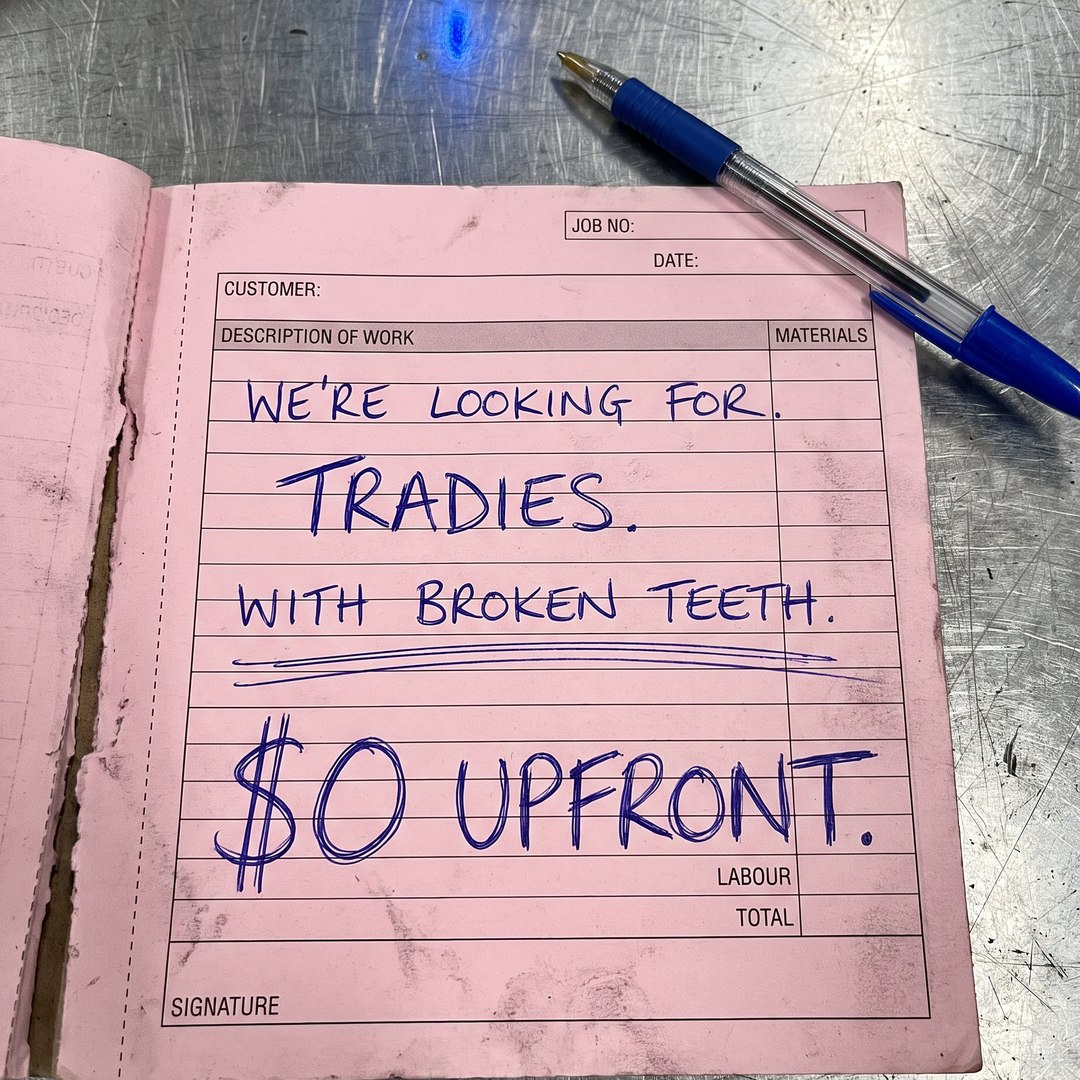 JOB NO:
DATE:
CUSTOMER:
DESCRIPTION OF WORK MATERIALS
WE'RE LOOKING FOR.
TRADIES.
WITH BROKEN TEETH.
$0 UPFRONT.
LABOUR
TOTAL
SIGNATURE